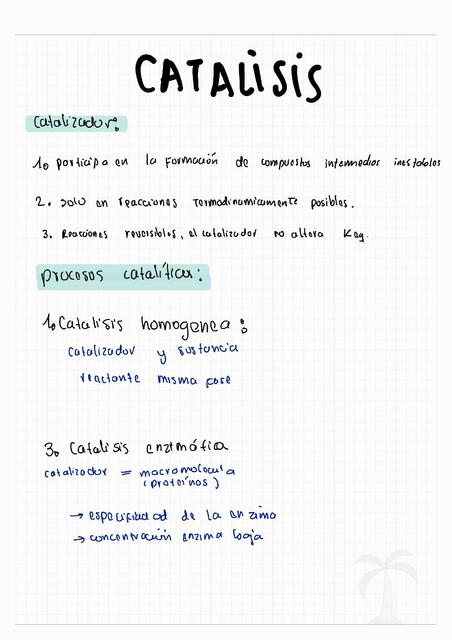 CATALISIS
catalizador:
1. participa en la formación de compuestos intermedios inestables
2. solo en reacciones termodinamicamente posibles.
3. Reacciones reversibles, el catalizador no altera Keq.
procesos catalíticos:
1. Catalisis homogenea:
catalizador y sustancia
reactante misma fase
3. Catalisis enzimática
catalizador = macromolecula
(proteínas)
→ especificidad de la enzima
→ concentración enzima baja